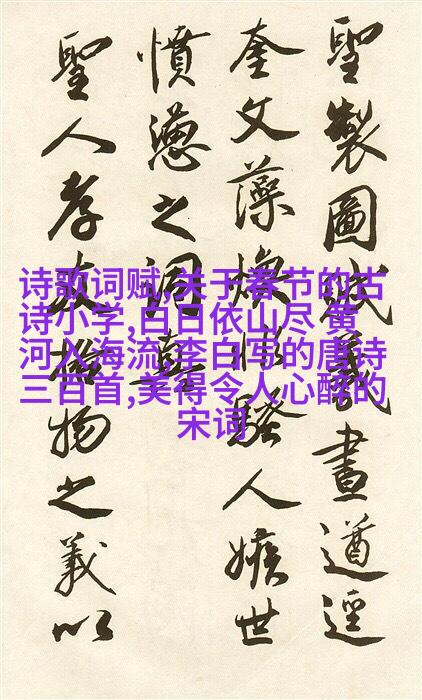 诗歌词赋,关于春节的古
诗小学,白日依山尽 黄
河入海流,李白写的唐诗
三百首,美得令人心醉的
宋词
聖製圖義畫遒逕
奎文藻煥騷人嫉世
憤懣之詞
聖人物之義以